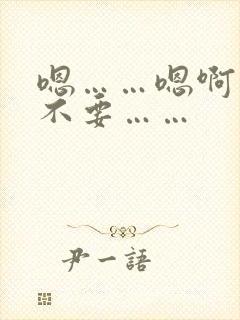 嗯……嗯啊
不要……
尹一語